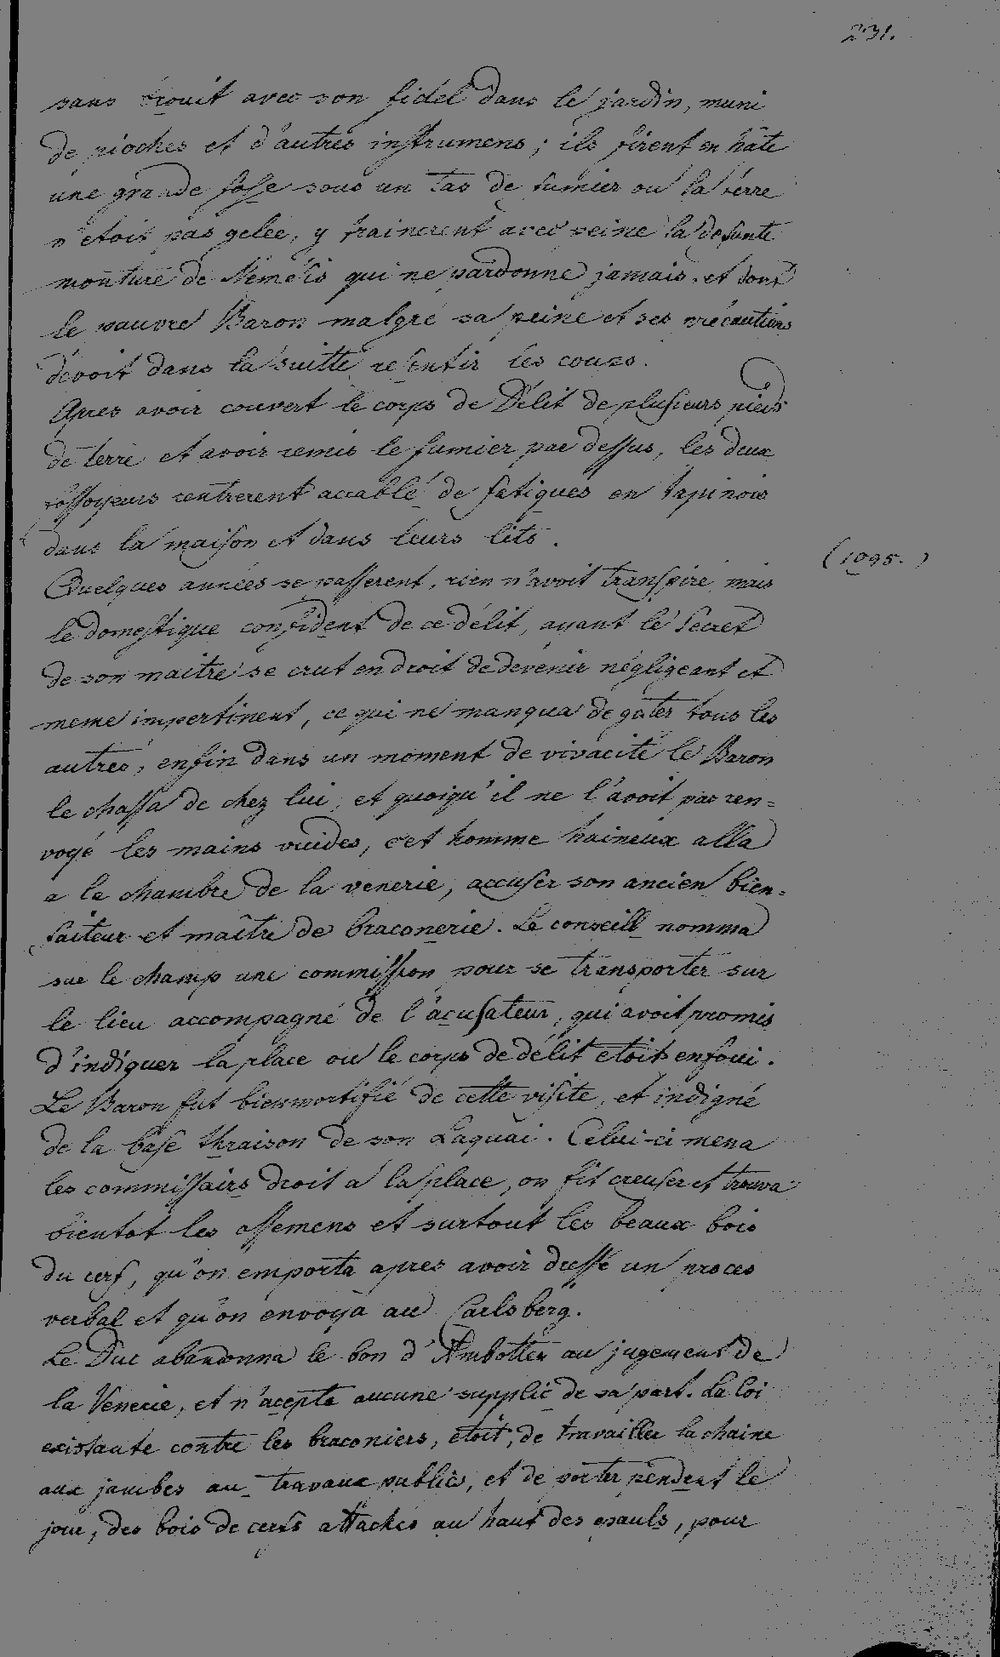 231.
sans bruit avec son fidel dans le jardin, muni
de pioches et d'autres instrumens; ils firent en hâte
une grande fosse sous un tas de fumier ou la terre
n'etoit pas gelée, y trainerent avec peine la defunte
monture de Némésis qui ne pardonne jamais, et dont
le pauvre Baron malgré sa peine et ses précautions
devoit dans la suitte resentir les coups.
Apres avoir couvert le corps de Délit de plusieurs pieds
de terre et avoir remis le fumier par dessus, les deux
fossoyeurs rentrerent accablé de fatigues en tapinois
dans la maison et dans leurs lits.
(1095.)
Quelques années se passerent, rien n'avoit transpiré, mais
le domestique confident de ce délit, ayant le secret
de son maitre se crut en droit de devenir négligeant et
meme impertinent, ce qui ne manqua de gater tous les
autres; enfin dans un moment de vivacité le Baron
le chassa de chez lui, et quoiqu'il ne l'avoit pas ren=
voyé les mains vuides, cet homme haineux alla
a la chambre de la venerie, accuser son ancien bien=
faiteur et maître de braconerie. Le conseill nomma
sur le champ une commission pour se transporter sur
le lieu accompagné de l'acusateur, qui avoit promis
d'indiquer la place ou le corps de délit etoit enfoui.
Le Baron fut bien mortifié de cette visite, et indigné
de la base thraison de son Laquai. Celui-ci mena
les commissairs droit a la place, on fit creuser et trouva
bientot les ossemens et surtout les beaux bois
du cerf, qu'on emporta apres avoir dressé un proces
verbal et qu'on envoya au Carlsberg.
Le Duc abandonna le bon d'Ambotten au jugement de
la Venerie, et n'acepta aucune supplic de sa part. La loi
existante contre les braconiers, etoit, de travailler la chaine
aux jambes au travaux publics, et de porter pendent le
jour, des bois de cerfs attachés au haut des epauls, pour